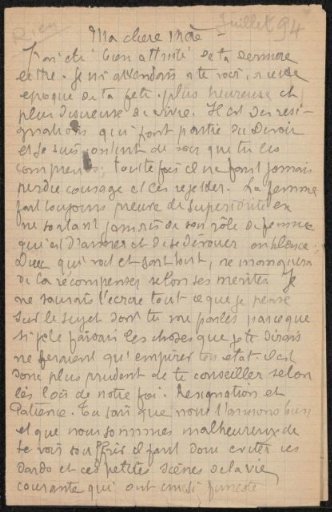 Juillet 94
Ma chere Mère
J'ai été bien attristé de ta derniere
lettre. Je m'attendais a te voir, a cette
epoque de ta fete, plus heureuse et
plus disireuse de vivre. Il est des resi-
gnations qui font partie du Devoir
et je suis content de voir que tu les
comprends, toutefois il ne faut jamais
perdre courage et les rejetter. La femme
fait toujours preuve de superiorité en
ne sortant jamais de son rôle de femme
qui est d'aimer et de se dévouer en silence;
Dieu qui voit et sait tout, ne manquera
de la récompenser selon ses merites. Je
ne saurais t'ecrire tout ce que je pense
sur le sujet dont tu me parles parce que
si je le faisais les choses que je te dirais
ne feraient qu'empirer ton état il est
donc plus prudent de te conseiller selon
les lois de notre foi: Resignation et
Patience. Tu sais que nous t'aimons bien
et que nous sommes malheureux de
te voir souffrir il faut donc eviter ces
et ces petites scènes de la vie
courante qui ont